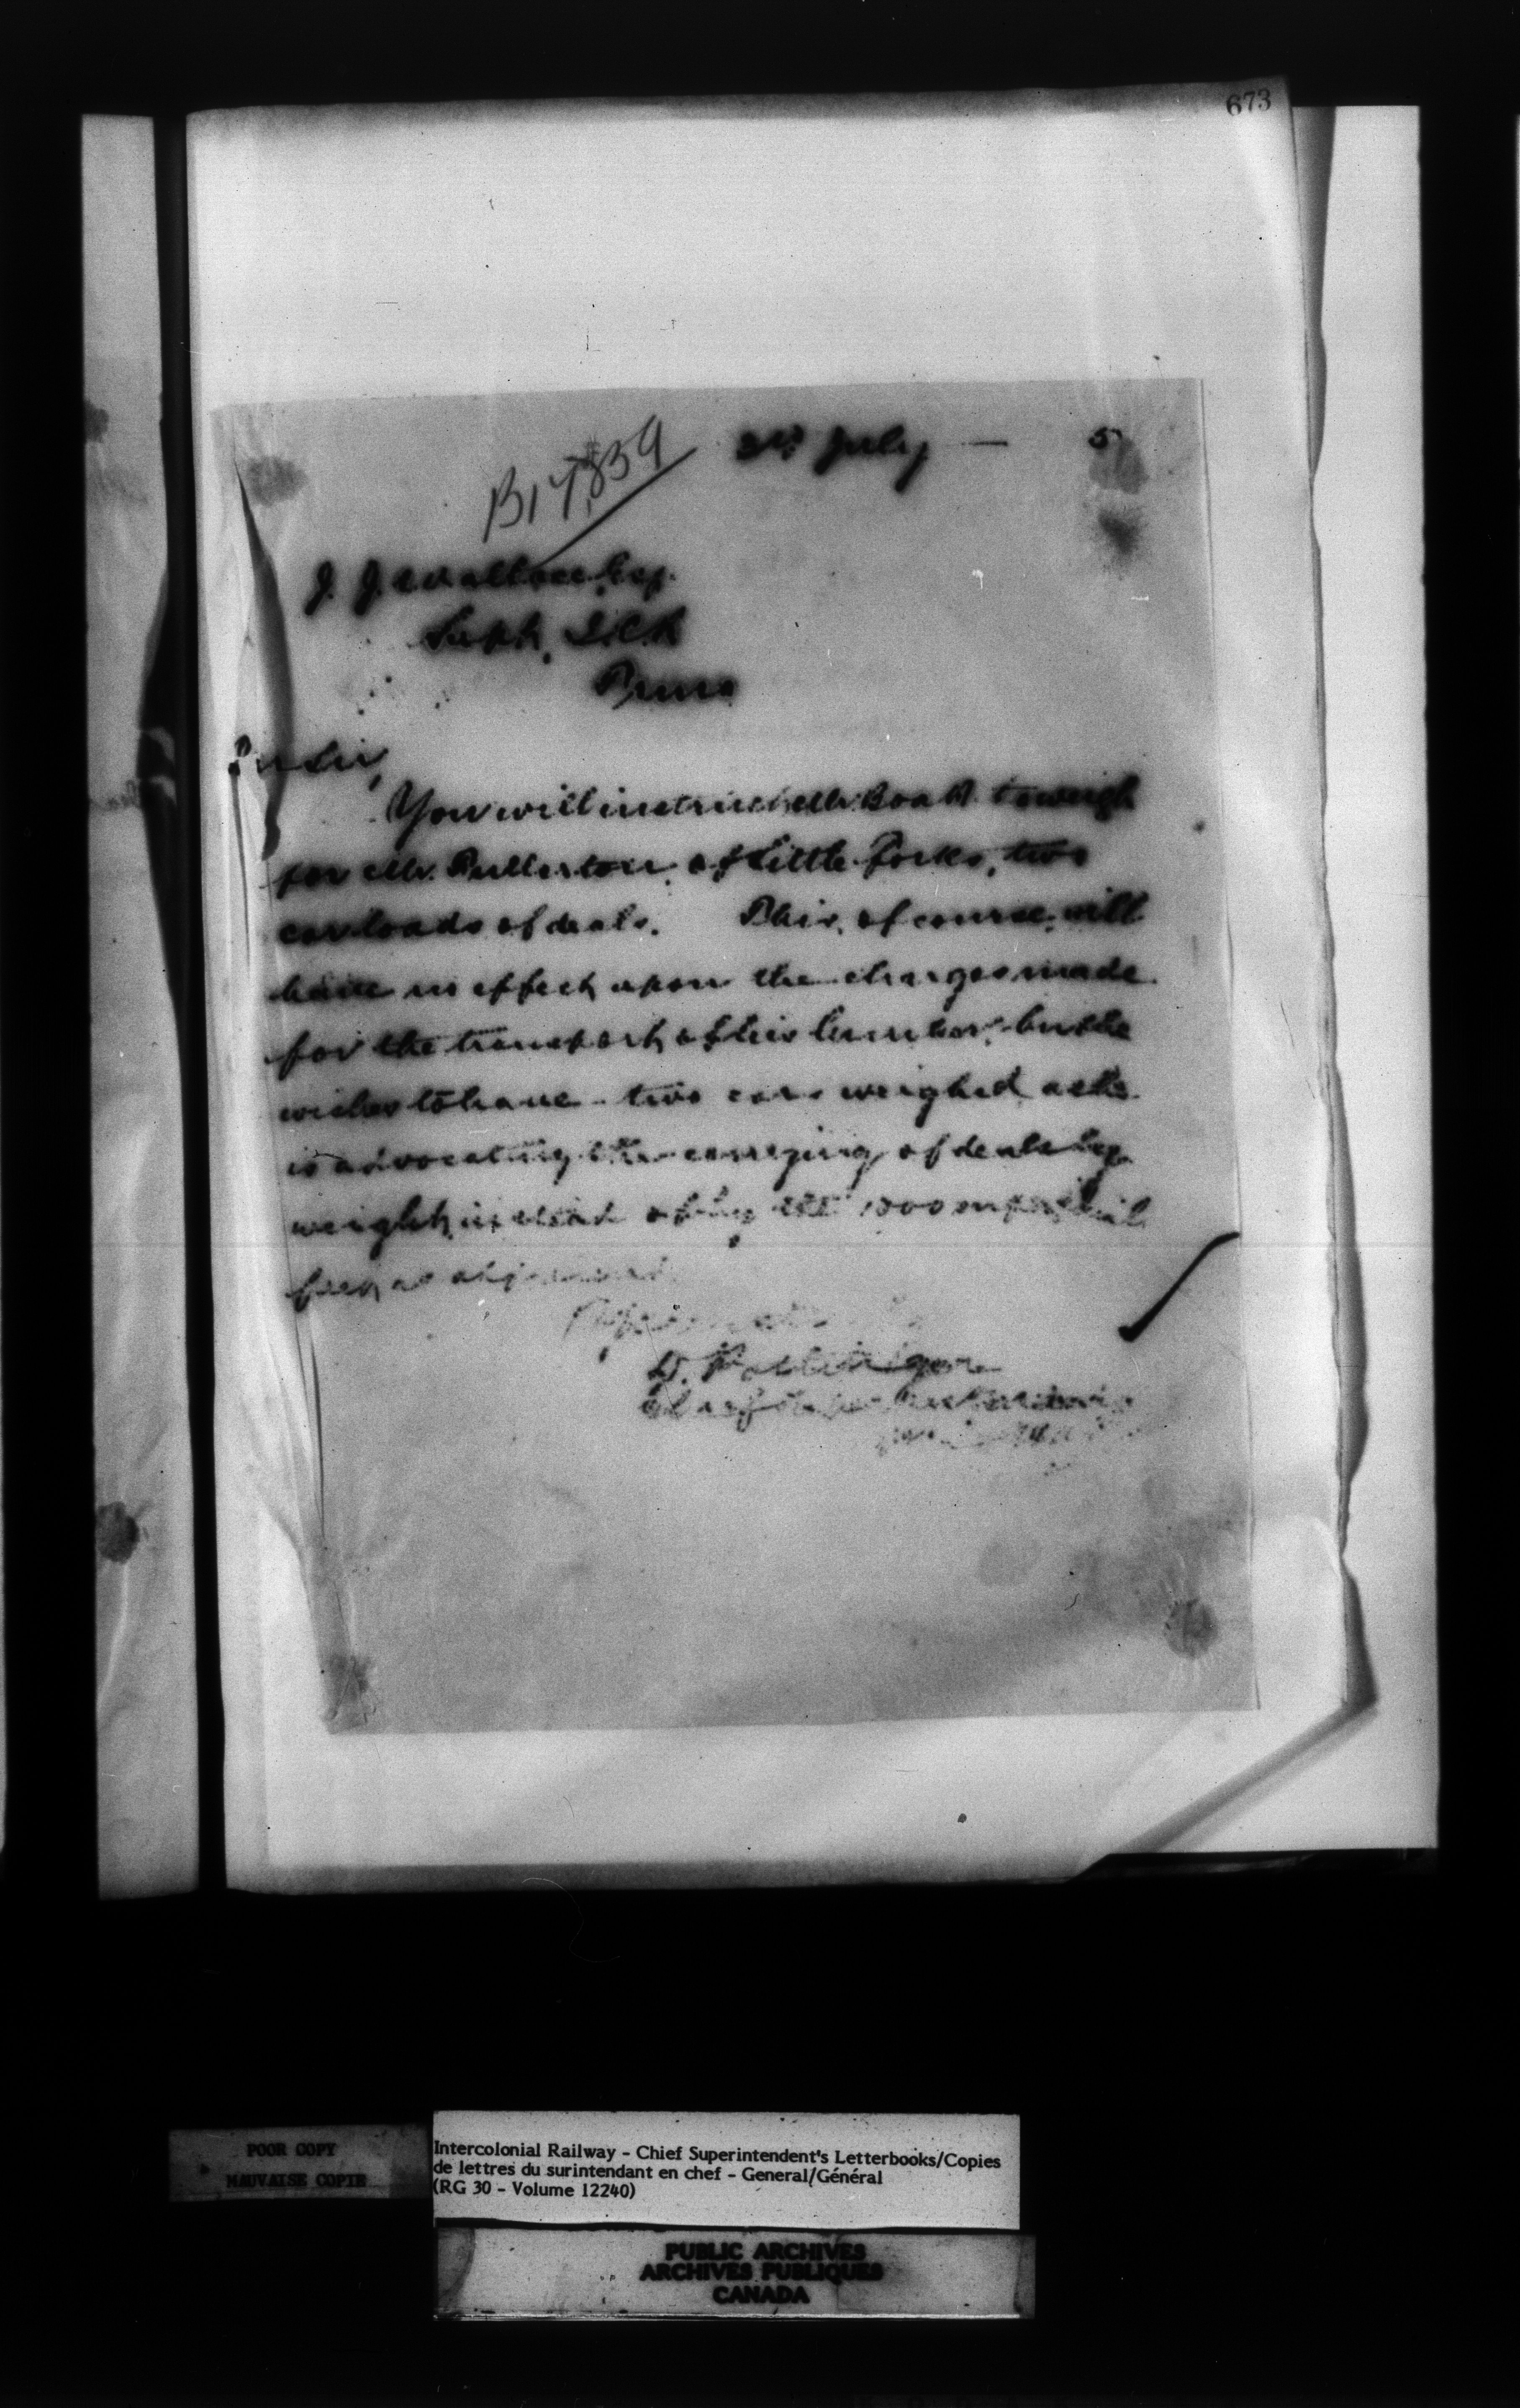 673
July — 5
B17,839
J. J. Wallace Esq.
Supt. I.C.R.
Truro
Dr Sir,
You will instruct Mr. Boak to weigh
for Mr. Fullerton, of Little Forks, two
car loads of deals. This, of course, will
have no effect upon the charges made
for the transport of his lumber, but he
wishes to have two cars weighed as he
is advocating the carrying of deals by
weight instead of by the 1000 superficial
feet as at present.
D. Pottinger
Chief Superintendent
POOR COPY
MAUVAISE COPIE
Intercolonial Railway - Chief Superintendent's Letterbooks/Copies
de lettres du surintendant en chef - General/Général
(RG 30 - Volume 12240)
PUBLIC ARCHIVES
ARCHIVES PUBLIQUES
CANADA